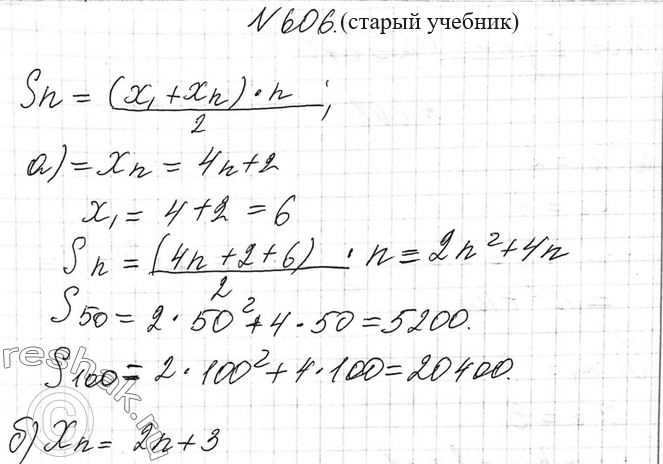 №606. (старый учебник)
Sn = (x₁ + xn) · n / 2 ;
а) = xn = 4n+2
x₁ = 4+2 = 6
Sn = (4n+2+6) / 2 · n = 2n² + 4n
S₅₀ = 2 · 50² + 4 · 50 = 5200.
S₁₀₀ = 2 · 100² + 4 · 100 = 20400.
б) xn = 2n+3
reshak.ru